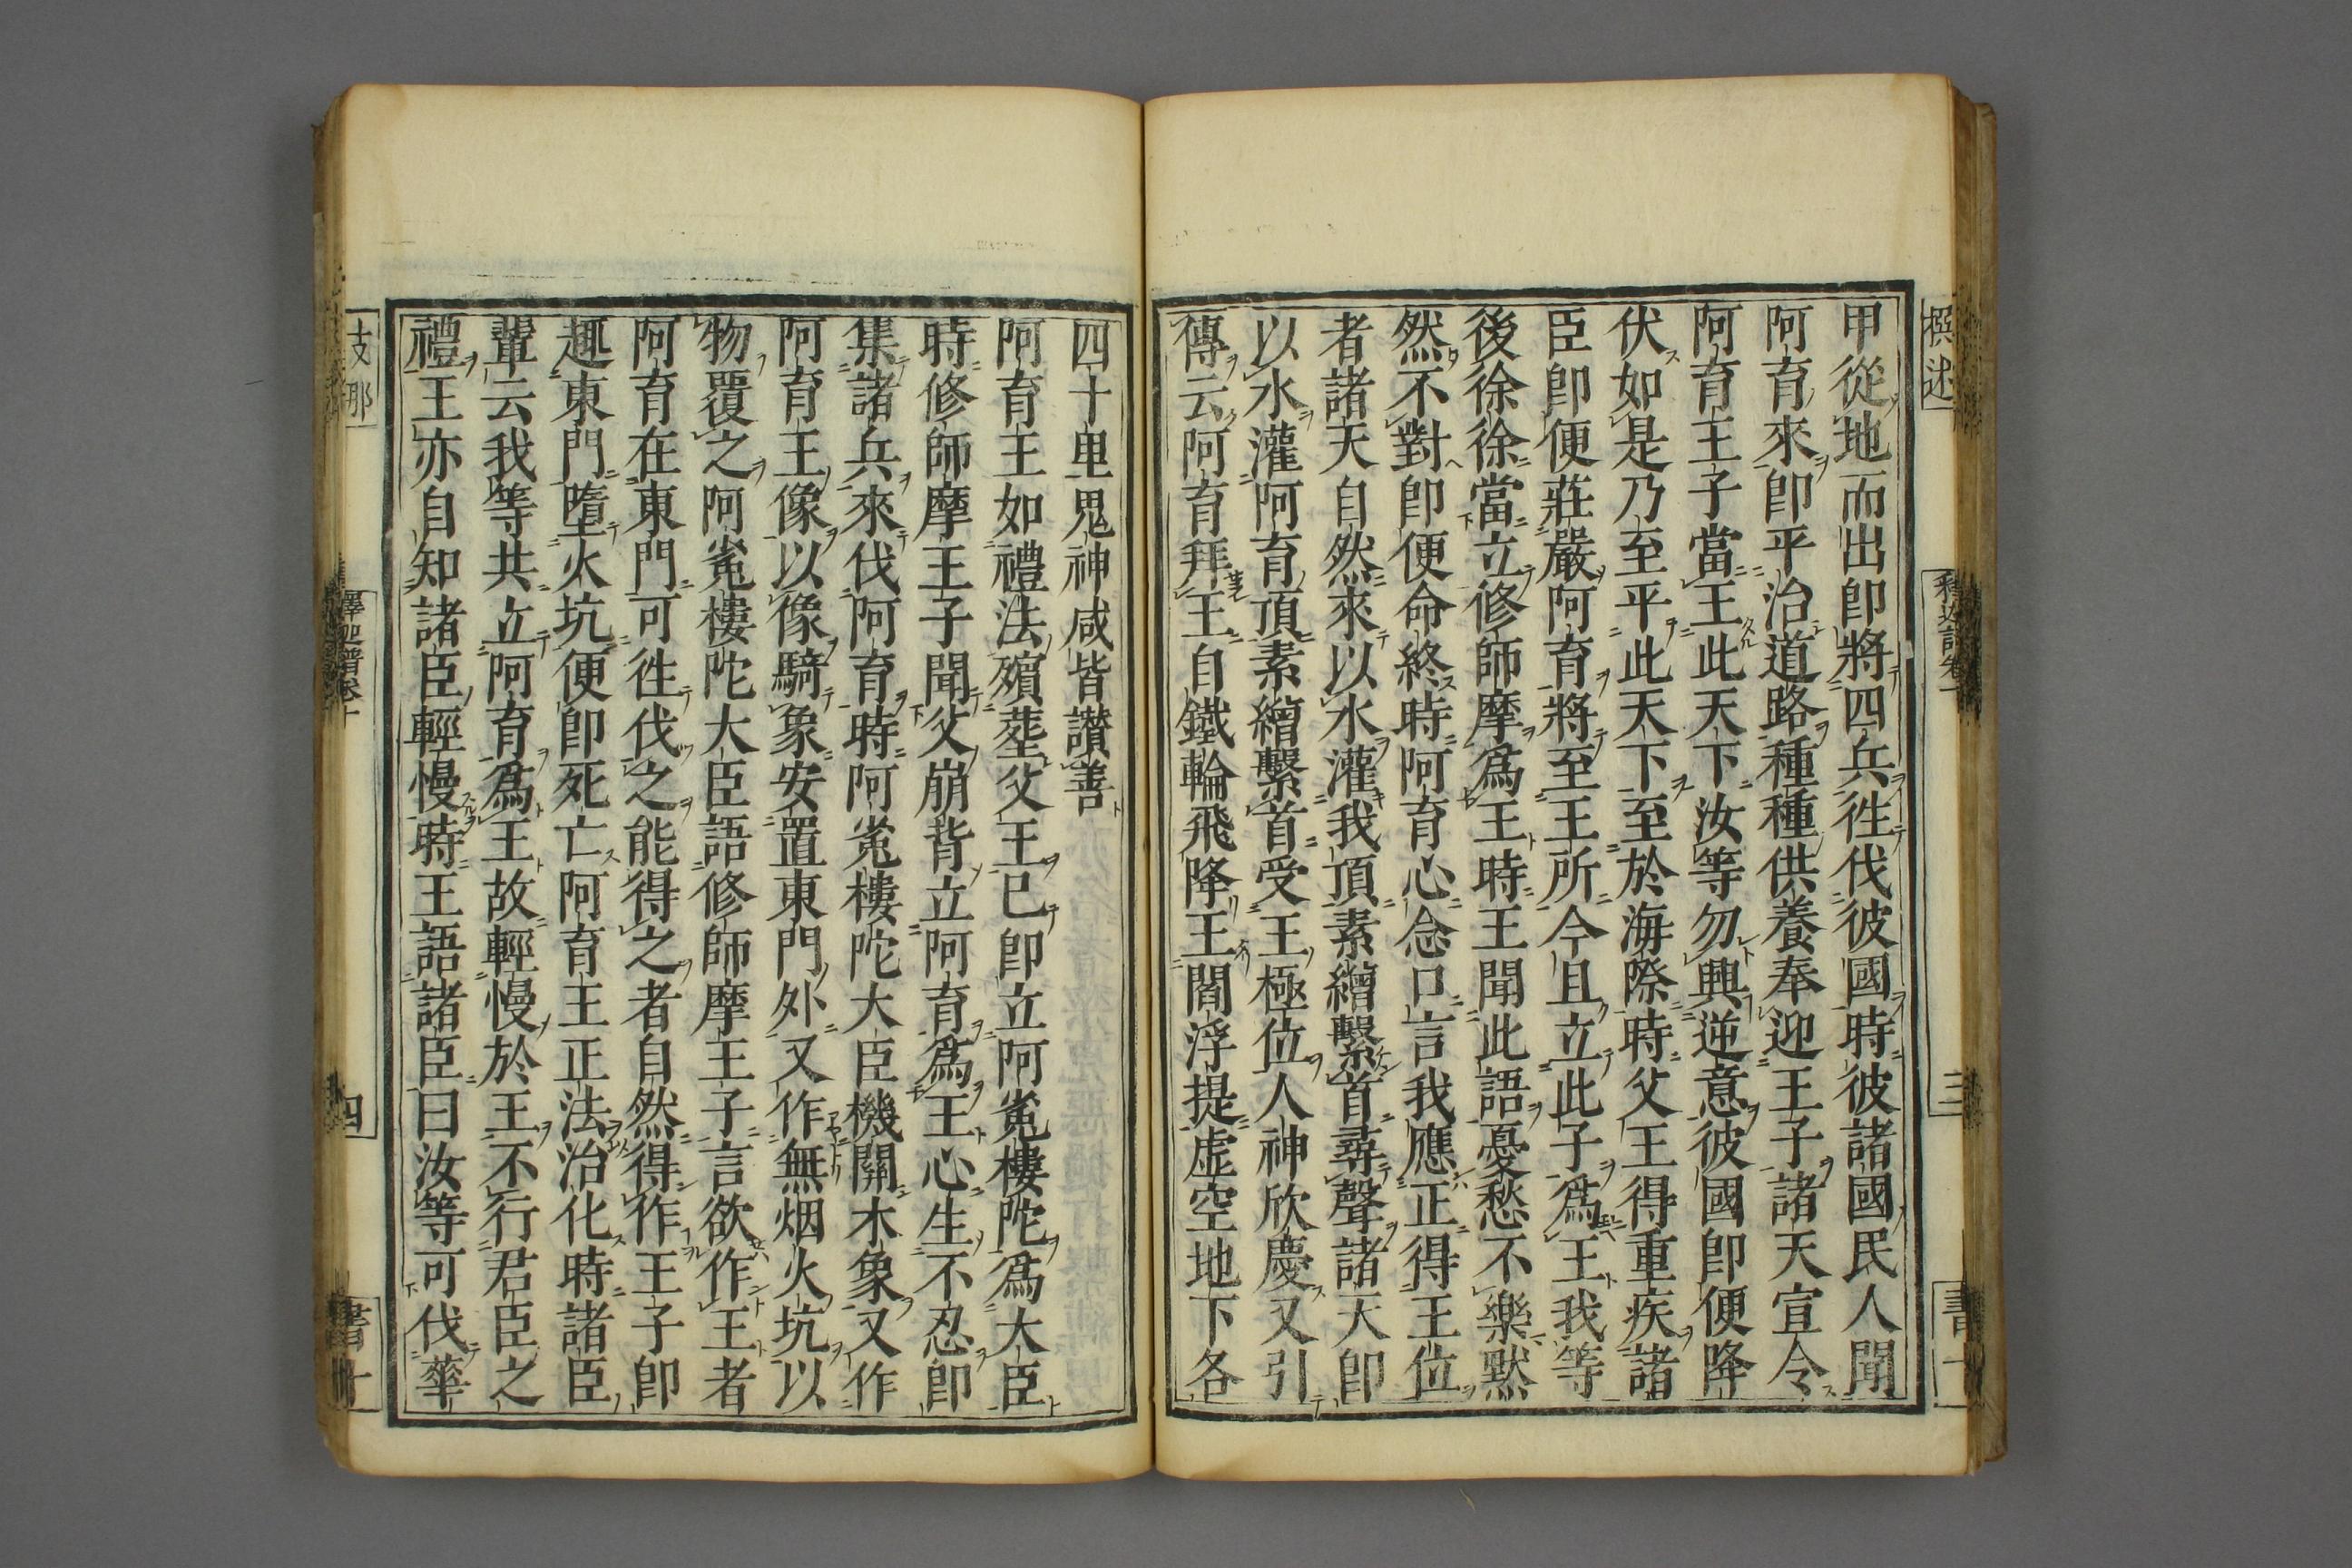 撰述
甲從地而出即將四兵徃伐彼國時彼諸國民人聞
阿育來即平治道路種種供養奉迎王子諸天宣令
阿育王子當王此天下汝等勿興逆意彼國即便降
伏如是乃至平此天下至於海際時父王得重疾諸
臣即便莊嚴阿育將至王所今且立此子爲王我等
後徐徐當立修師摩爲王時王聞此語憂愁不樂默
然不對即便命終時阿育心念口言我應正得王位
者諸天自然來以水灌我頂素繒繫首尋聲諸天即
以水灌阿育頂素繒繫首受王極位人神欣慶又引
傳云阿育拜王自鐵輪飛降王閻浮提虛空地下各
四十里鬼神咸皆讃善
阿育王如禮法殯塟父王已即立阿㝹樓陀爲大臣
時修師摩王子聞父崩背立阿育爲王心生不忍即
集諸兵來伐阿育時阿㝹樓陀大臣機關木象又作
阿育王像以像騎象安置東門外又作無烟火坑以
物覆之阿㝹樓陀大臣語修師摩王子言欲作王者
阿育在東門可徃伐之能得之者自然得作王子即
趣東門墮火坑便即死亡阿育王正法治化時諸臣
輩云我等共立阿育爲王故輕慢於王不行君臣之
禮王亦自知諸臣輕慢時王語諸臣曰汝等可伐華
支那
釋迦譜卷十
四